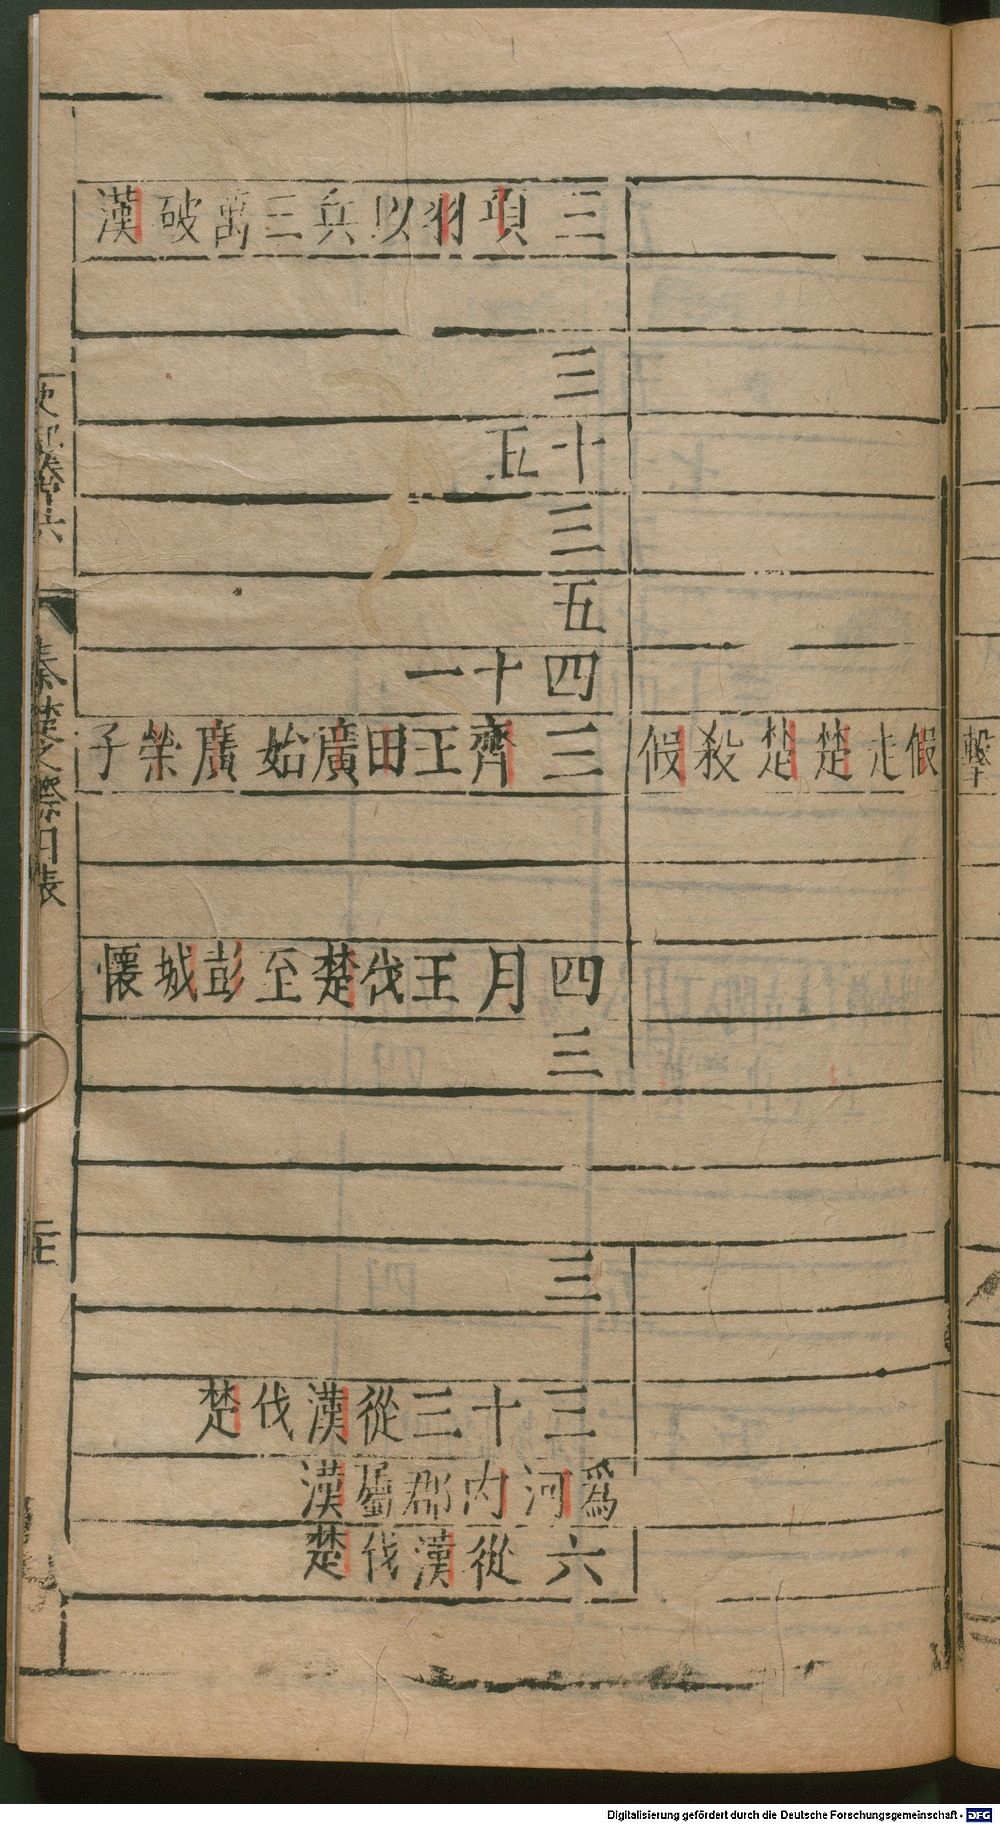 三項羽以兵三萬破漢
三
十五
三
五
四十一
擊
假走楚楚殺假
三齊王田廣始廣榮子
四月王伐楚至彭城懷
三
三
三十三從漢伐楚
爲河內郡屬漢
六從漢伐楚
秦楚之際月表
Digitalisierung gefördert durch die Deutsche Forschungsgemeinschaft - DFG